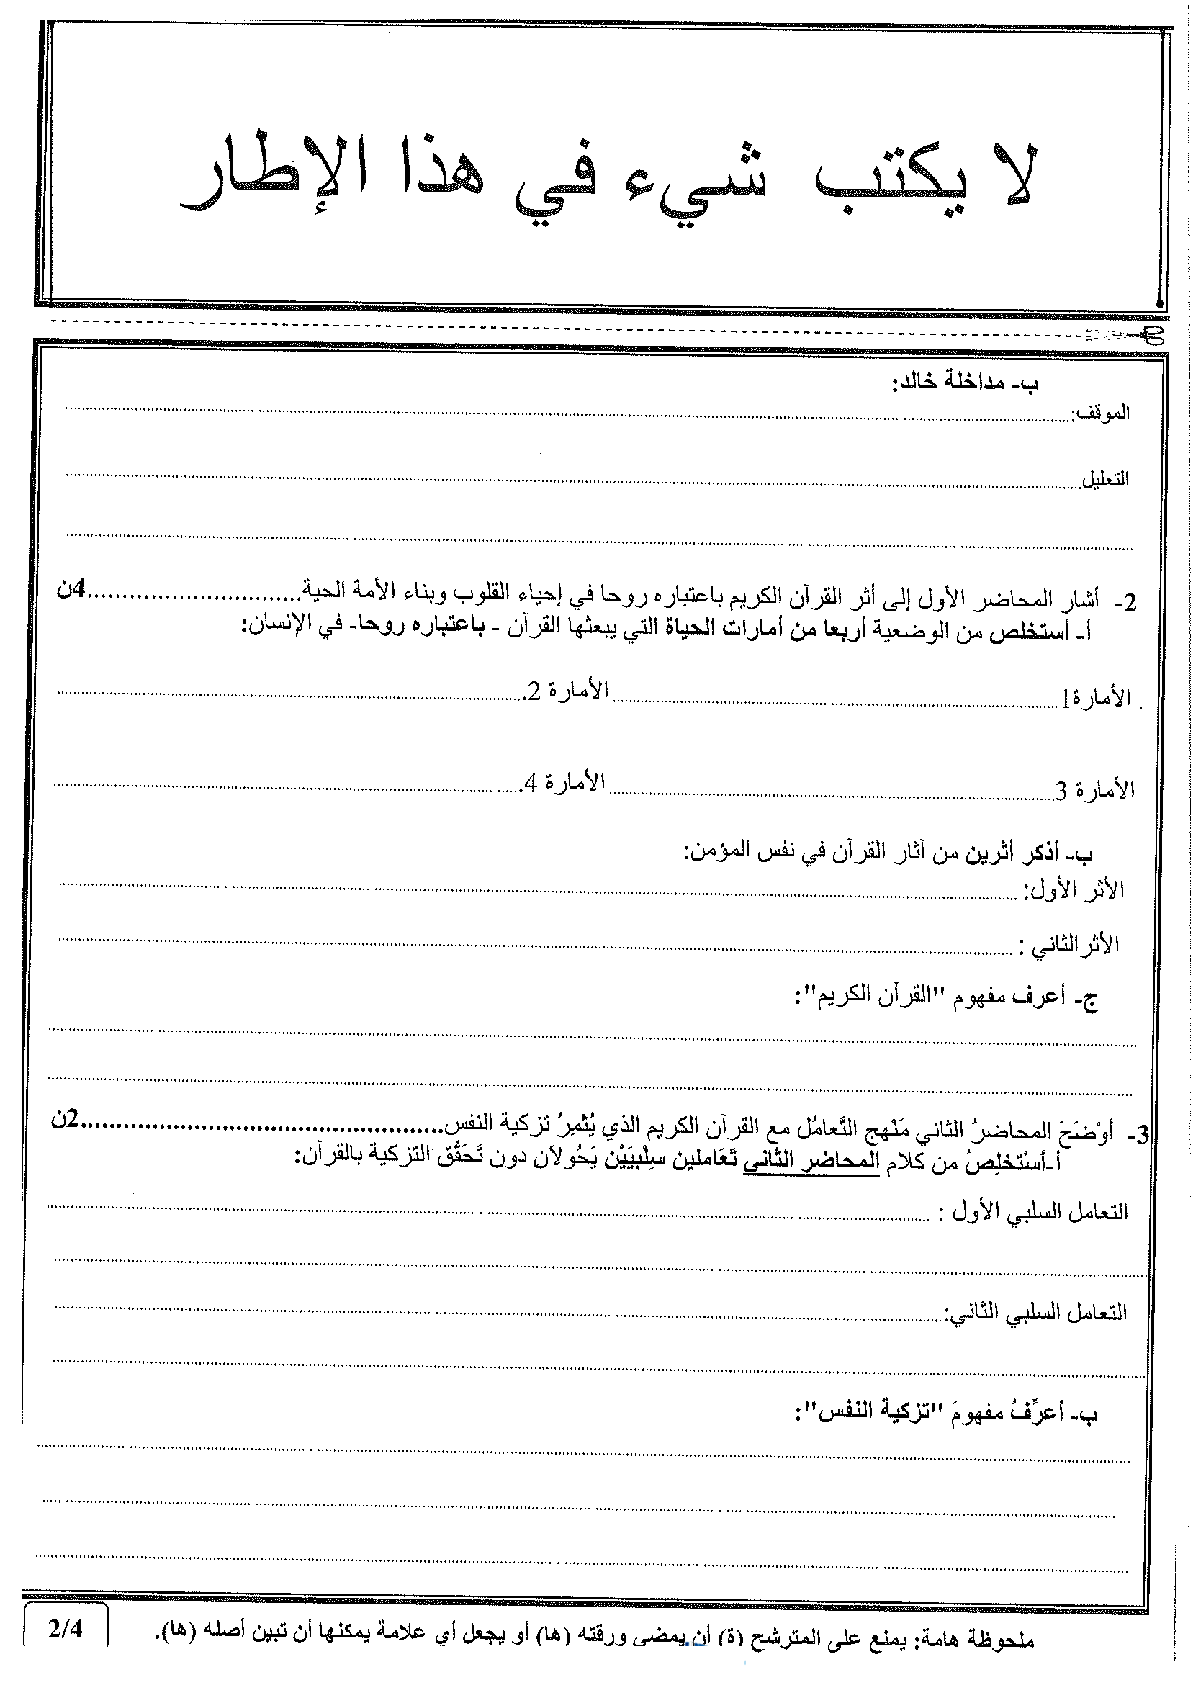 لا يكتب شيء في هذا الإطار
ب- مداخلة خالد:
الموقف:
التعليل
2- أشار المحاضر الأول إلى أثر القرآن الكريم باعتباره روحا في إحياء القلوب وبناء الأمة الحية..............................4ن
أ- أستخلص من الوضعية أربعا من أمارات الحياة التي يبعثها القرآن - باعتباره روحا- في الإنسان:
. الأمارة1..............................الأمارة 2..............................
الأمارة 3..............................الأمارة 4..............................
ب- أذكر أثرين من آثار القرآن في نفس المؤمن:
الأثر الأول:
الأثر الثاني :
ج- أعرف مفهوم "القرآن الكريم":
3- أوْضَحَ المحاضرُ الثاني مَنْهج التَّعامُل مع القرآن الكريم الذي يُثْمِرُ تزكية النفس..............................2ن
أ-أسْتخلِصُ من كلام المحاضر الثاني تَعَاملين سِلْبيَيْن يَحُولاَن دون تَحَقُّق التزكية بالقرآن:
التعامل السلبي الأول :
التعامل السلبي الثاني:
ب- أعرِّفُ مفهومَ "تزكية النفس":
ملحوظة هامة: يمنع على المترشح (ة) أن يمضى ورقته (ها) أو يجعل أي علامة يمكنها أن تبين أصله (ها).
2/4